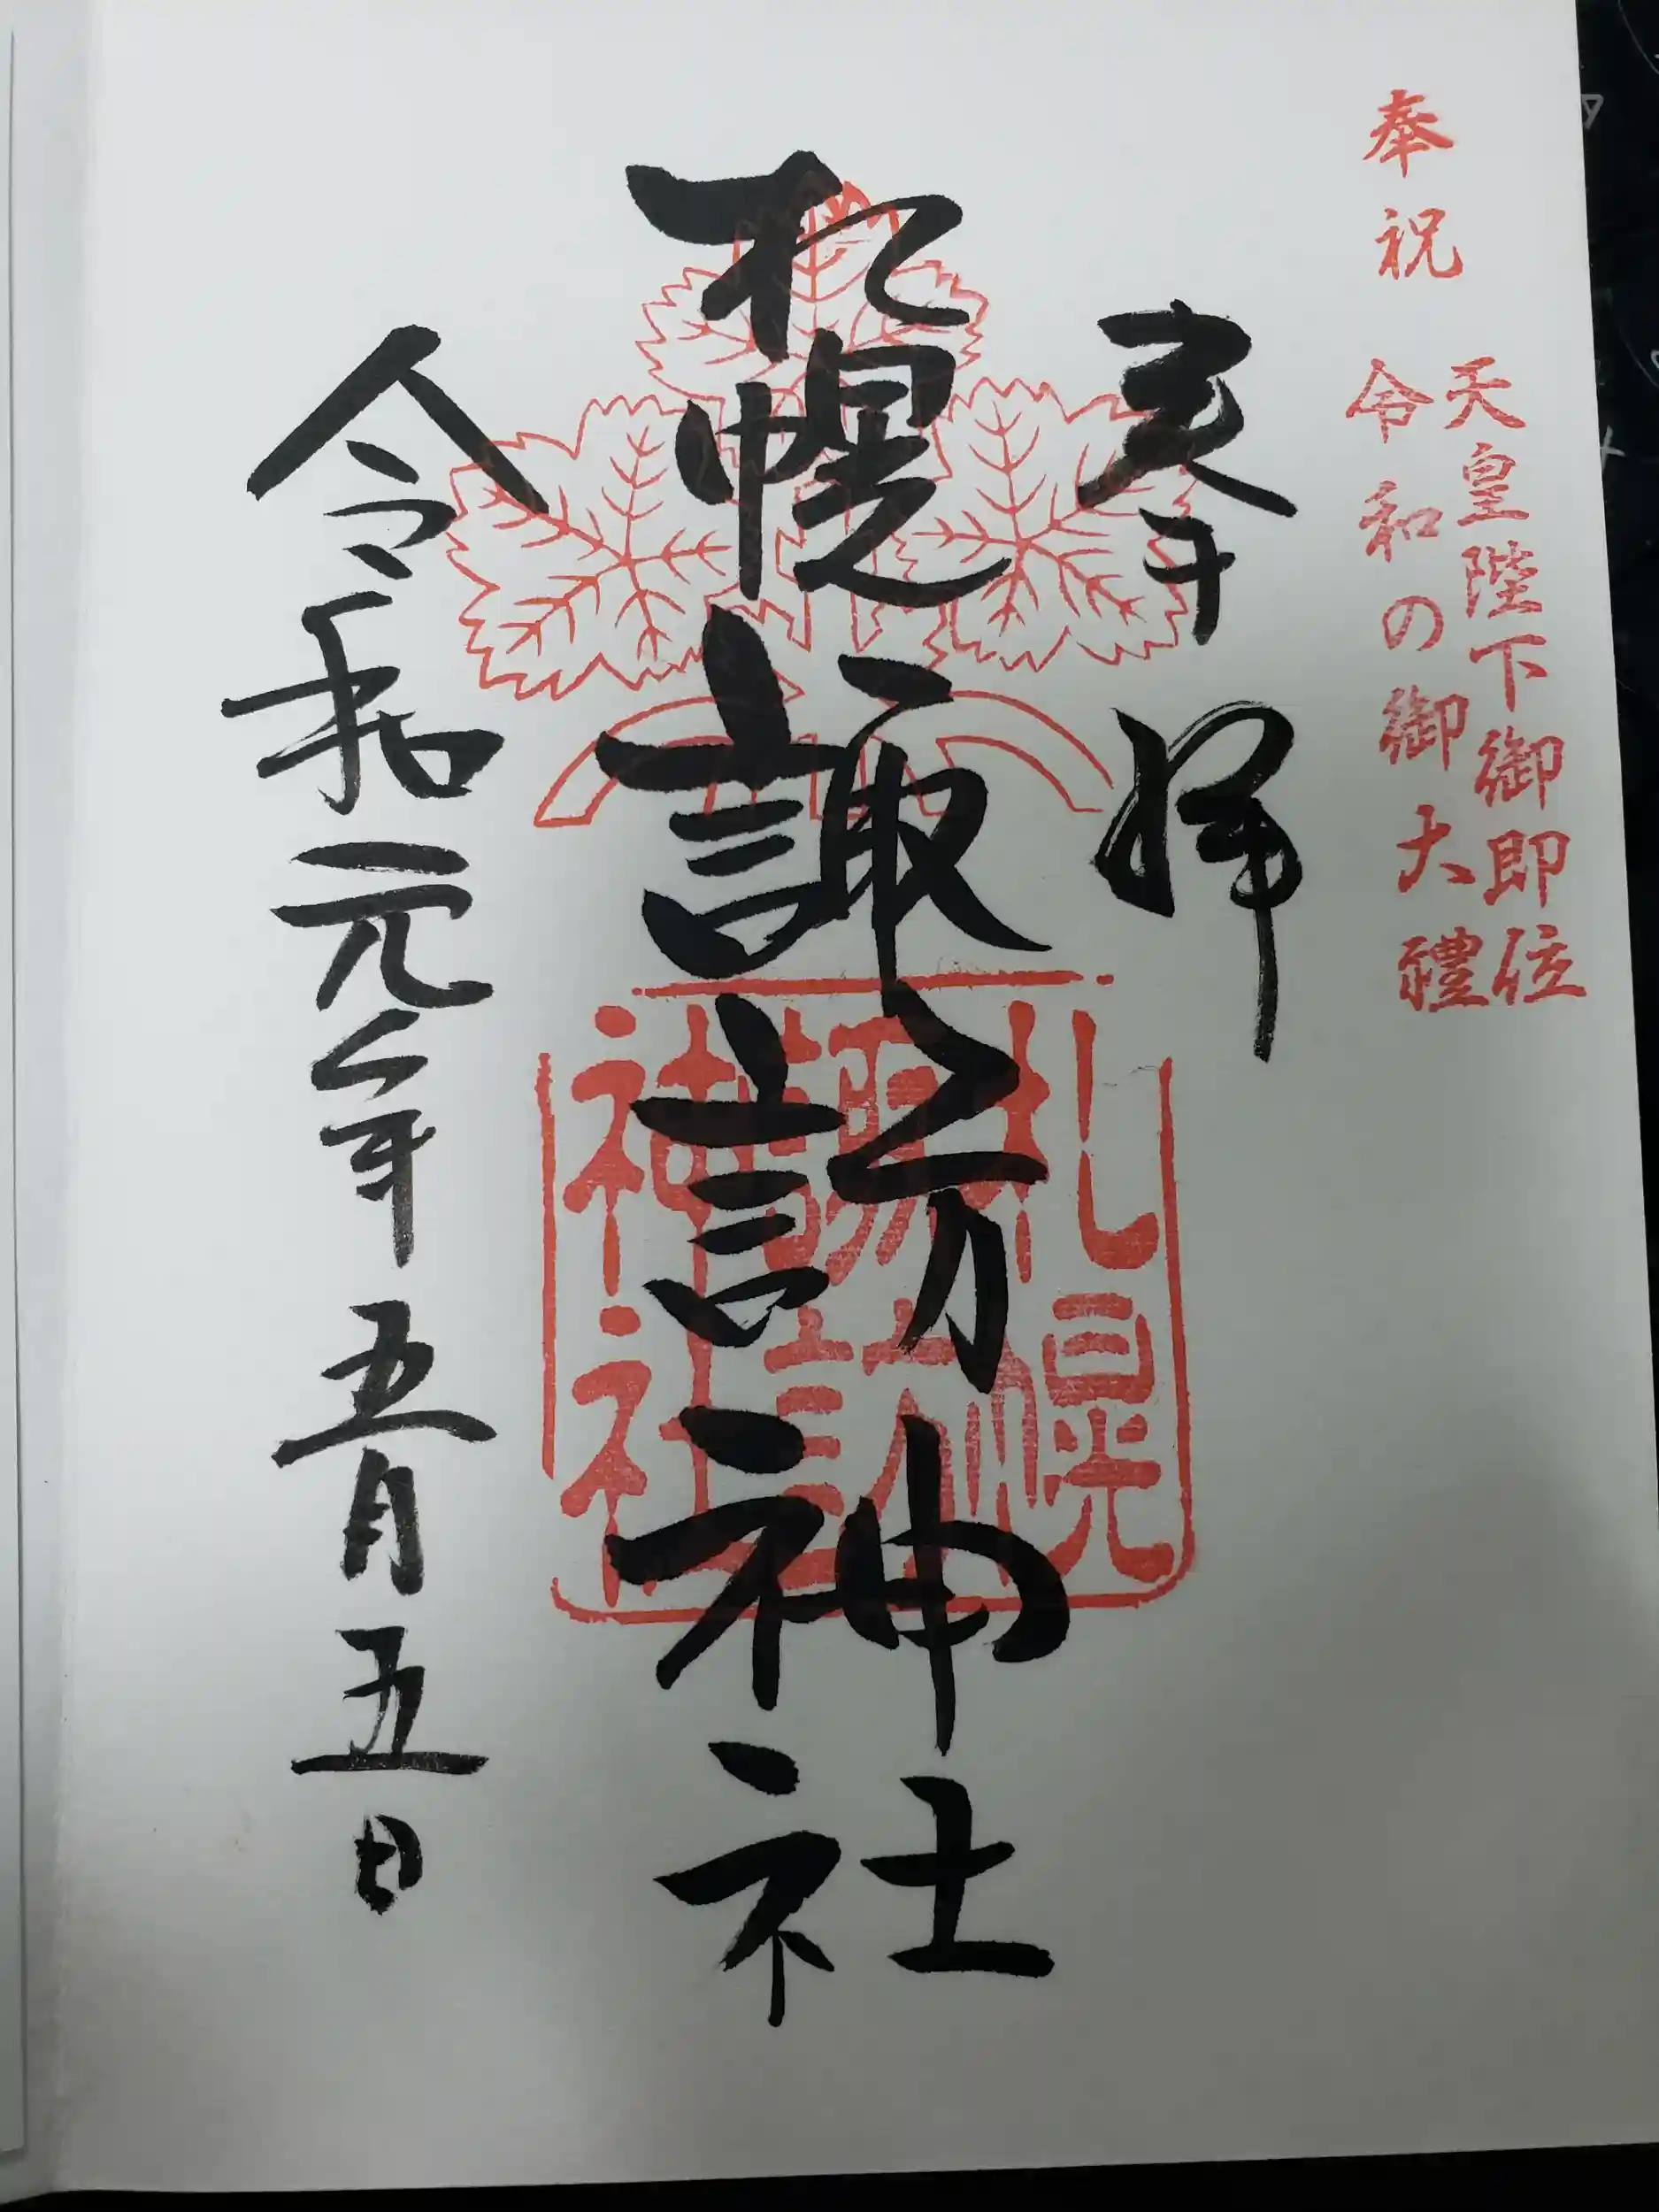 奉祝
天皇陛下御即位
令和の御大禮
奉拝
札幌諏訪神社
令和元年五月五日
札幌
諏訪
神社